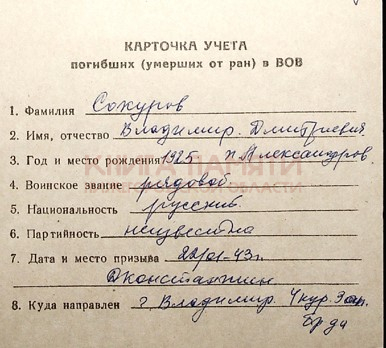 КАРТОЧКА УЧЕТА
погибших (умерших от ран) в ВОВ
1. Фамилия Сокуров
2. Имя, отчество Владимир Дмитриевич
3. Год и место рождения 1925 п. Александров
КНИГА ПАМЯТИ
4. Воинское звание рядовой
ОБЛАСТИ
5. Национальность русский
6. Партийность неизвестна
7. Дата и место призыва 22/01-43г.
8. Куда направлен г. Владимир. 4 кур.